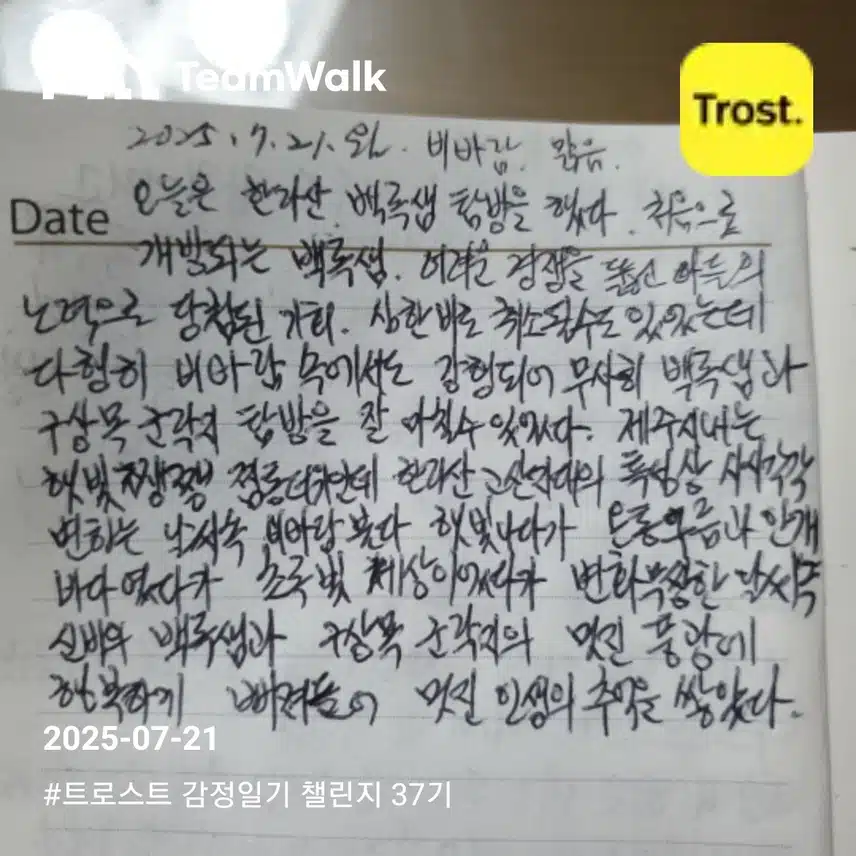 TeamWalk
Trost.
2025. 7. 21. 월. 비바람. 맑음.
Date
오늘은 한라산 백록샘 탐방을 했다. 처음으로
개방되는 백록샘. 어려운 경쟁을 뚫고 아들의
노력으로 당첨된 기회. 심한비로 취소될수도 있었는데
다행히 비바람 속에서도 강행되어 무사히 백록샘과
구상목 군락지 탐방을 잘 마칠수 있었다. 제주시내는
햇빛 쨍쨍 찜통더위인데 한라산 고산지대의 특성상 시시각각
변하는 날씨속 비바람 불다 햇빛나다가 온통 구름과 안개
바다였다가 초록빛 세상이었다가 변화무쌍한 날씨속
신비의 백록샘과 구상목 군락지의 멋진 풍광에
행복하게 빠져들어 멋진 인생의 추억을 쌓았다.
2025-07-21
#트로스트 감정일기 챌린지 37기